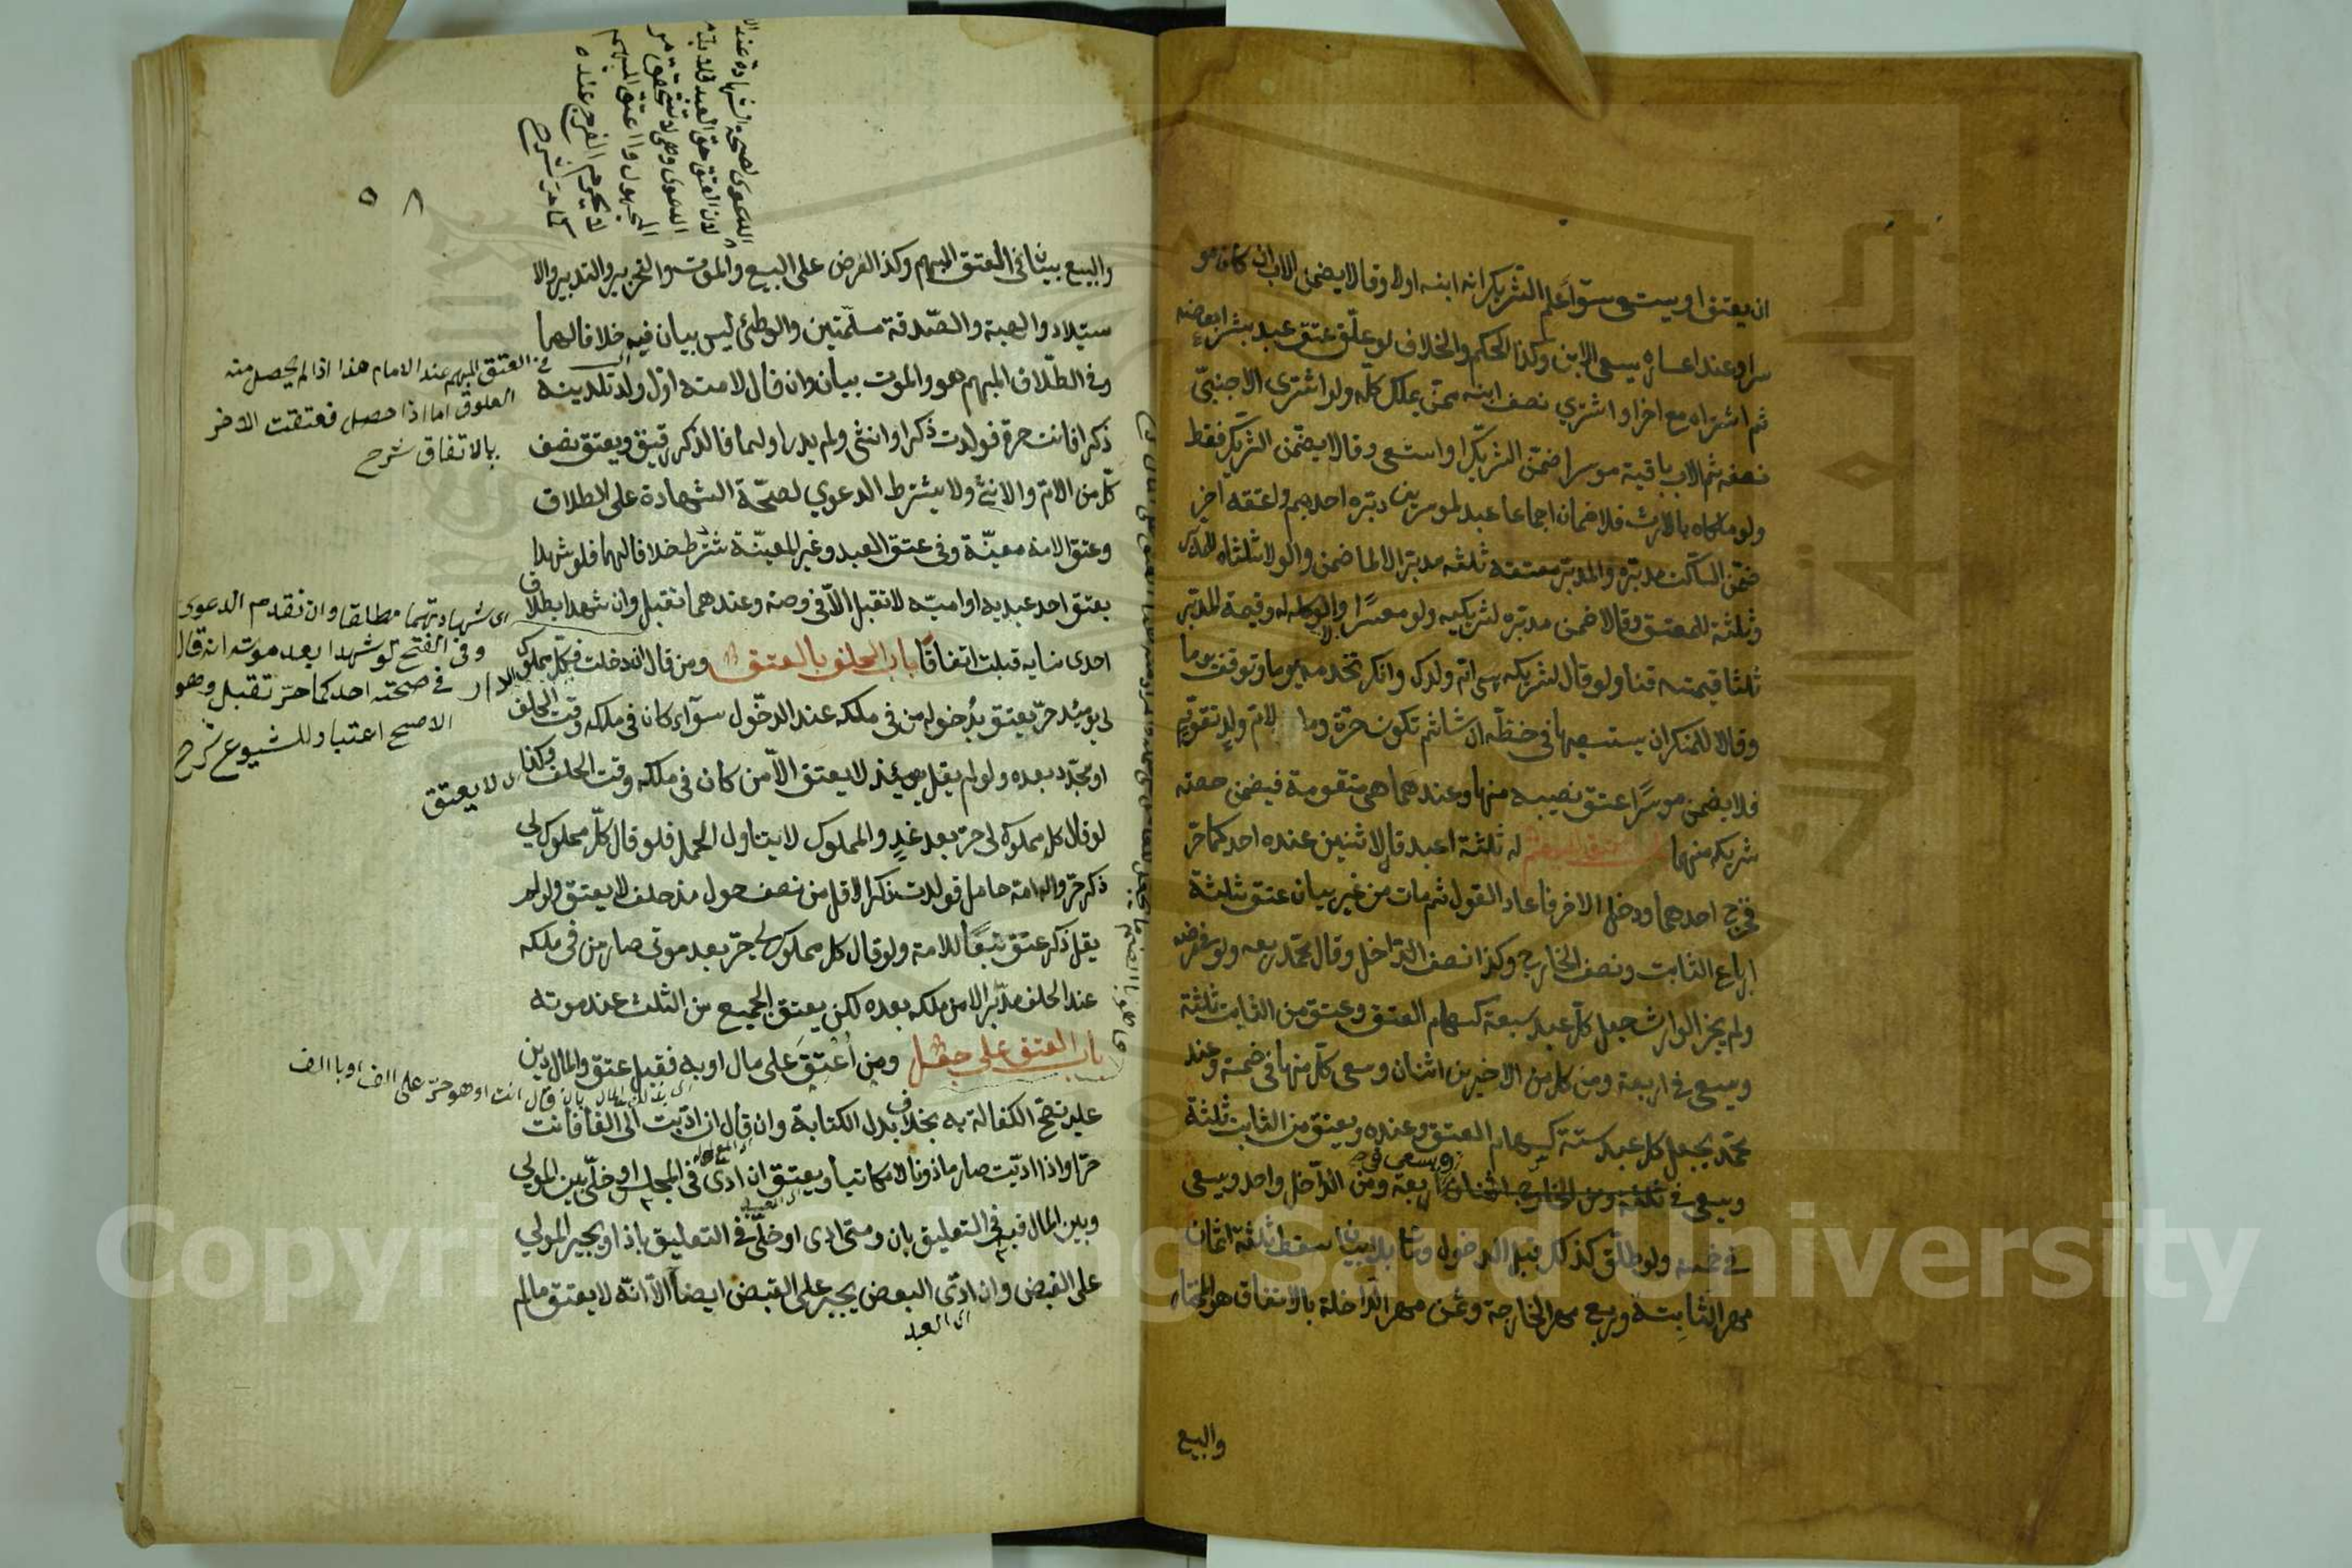 ان يعتق او يستسعى سوآء علم الشريك انه ابنه اولا وقالا يضمن الاب ان كان مو
سرا وعند اعساره يسعى الابن وكذا الحكم والخلاف لو علّق عتق عبد بشراء بعضه
ثم اشتراه مع اخر او اشترى نصف ابنه ممن يملك كلّه ولو اشترى الاجنبيّ
نصفه ثم الاب باقيه موسرا ضمّن الشريك او استسعى وقالا يضمّن الشريك فقط
ولو ملكاه بالارث فلا ضمان اجماعا عبد لموسرين دبّره احدهم واعتقه اخر
ضمّن الساكت مدبّره والمدبّر معتقه ثلثه مدبّرا لا لما ضمن والولا ثلثاه للمدبّر
وثلثه للمعتق وقالا ضمن مدبّره لشريكيه ولو معسرًا والولا كله له وقيمة المدبّر
ثلثا قيمته قنا ولو قال لشريكه هي ام ولدك وانكر تخدمه يوما وتوقف يوما
وقالا للمنكر ان يستسعيها في حظّه ان شا ثم تكون حرّة وما لام ولد تقوّم
فلا يضمن موسرًا عتق نصيبه منها وعندهما هي متقومة فيضمن حصة
شريكه منها له ثلثة اعبد قال لاثنين عنده احدكما حرّ
فخرج احدهما ودخل الاخر فاعاد القول ثم مات من غير بيان عتق ثلثة
ارباع الثابت ونصف الخارج وكذا نصف الداخل وقال محمّد ربعه ولو في مرضه
ولم يجز الوارث جعل كلّ عبد سبعة كسهام العتق وعتق من الثابت ثلثة
ويسعى في اربعة ومن كل من الاخيرين اثنان وسعى كلّ منهما في خمسة وعند
محمّد يجعل كل عبد ستة كسهام العتق وعنده ويعتق من الثابت ثلثة
ويسعى في ثلثة ومن الخارج اثنان ويسعى في اربعة ومن الدّاخل واحد ويسعى
في خمسة ولو طلّق كذلك قبل الدخول ومات بلا بيان سقط ثلثة اثمان
مهر الثابتة وربع مهر الخارجة وثمن مهر الدّاخلة بالاتفاق هو المختار
والبيع
٥٨
والبيع بيان في العتق المبهم وكذ العرض على البيع والموت والتحرير والتدبير والا
ستيلاد والهبة والصّدقة مسلّمتين والوطئ ليس بيان فيه خلافا لهما
وفي الطّلاق المبهم هو والموت بيان وان قال لامته اوّل ولد تلدينه
ذكرا فانت حرة فولدت ذكرا وانثى ولم يدر اولهما فالذكر رقيق ويعتق نصف
كلّ من الامّ والانثى ولا يشترط الدعوى لصحّة الشهادة على الطلاق
وعتق الامة معيّنة وفي عتق العبد وغير المعيّنة شرط خلافا لهما فلو شهدا
بعتق احد عبديه او امتيه لا تقبل الّا في وصية وعندهما تقبل وان شهدا بطلاق
احدى نسايه قبلت اتفاقًا باب الحلف بالعتق ومن قال ان دخلت الدار فكل مملوك
لي يومئذ حرّ يعتق بدُخوله من في ملكه عند الدخّول سوآء كان في ملكه وقت الحلف
او تجدّد بعده ولو لم يقل يومئذ لا يعتق الّا من كان في ملكه وقت الحلف وكذا
لو قال كل مملوك لي حرّ بعد غدٍ والمملوك لا يتناول الحمل فلو قال كلّ مملوك لي
ذكر حرّ وله امة حامل فولدت ذكرا لاقل من نصف حول مذ حلف لا يعتق ولو لم
يقل ذكر عتق تبعًا للامة ولو قال كل مملوك لي حرّ بعد موتي صار من في ملكه
عند الحلف مدبّرا لا من ملكه بعده لكن يعتق الجميع من الثلث عند موته
باب العتق على جعل ومن اُعتِق على مال او به فقبل عتق والمال دين
عليه تصحّ الكفالة به بخلاف بدل الكتابة وان قال ان ادّيت الى الفا فانت
حرّ او اذا ادّيت صار ماذونا لا مكاتبا ويعتق ان ادّى في المجلس او خلّى بين المولى
وبين المال فيه في التعليق بان ومتى ادى او خلّى في التعليق باذا ويجبر المولى
على القبض وان ادّى البعض يجبر على القبض ايضًا الّا انّه لا يعتق ما لم
اى العبد
في العتق المبهم عند الامام هذا اذا لم يحصل منه
العلوق اما اذا حصل فعتقت الاخر
بالاتفاق شرح
اى شهادتهما مطلقا وان تقدم الدعوى
وفي الفتح لو شهدا بعد موته انه قال
في صحته احدكما حرّ تقبل وهو
الاصح اعتبار للشيوع شرح
لا يعتق
بان قال انت او هو حرّ على الف او بالف
Copyright © King Saud University